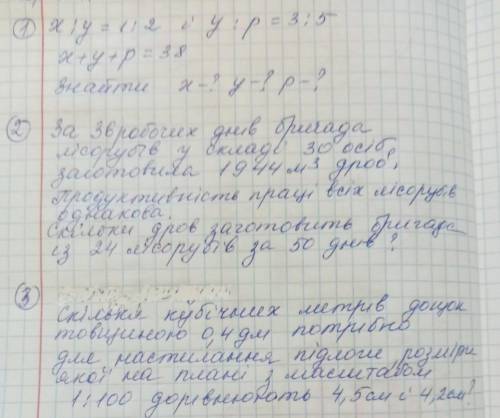 ① x : y = 1 : 2 і y : p = 3 : 5
x + y + p = 38
Знайти x - ? y - ? p - ?
② За 36 робочих днів бригада
лісорубів у складі 30 осіб
заготовила 1944 м³ дров,
Продуктивність праці всіх лісорубів
однакова.
Скільки дров заготовить бригада
із 24 лісорубів за 50 днів?
③ Скільки кубічних метрів дощок
товщиною 0,4 дм потрібно
для настилання підлоги розміри
якої на плані з масштабом
1 : 100 дорівнюють 4,5 см і 4,2 см?